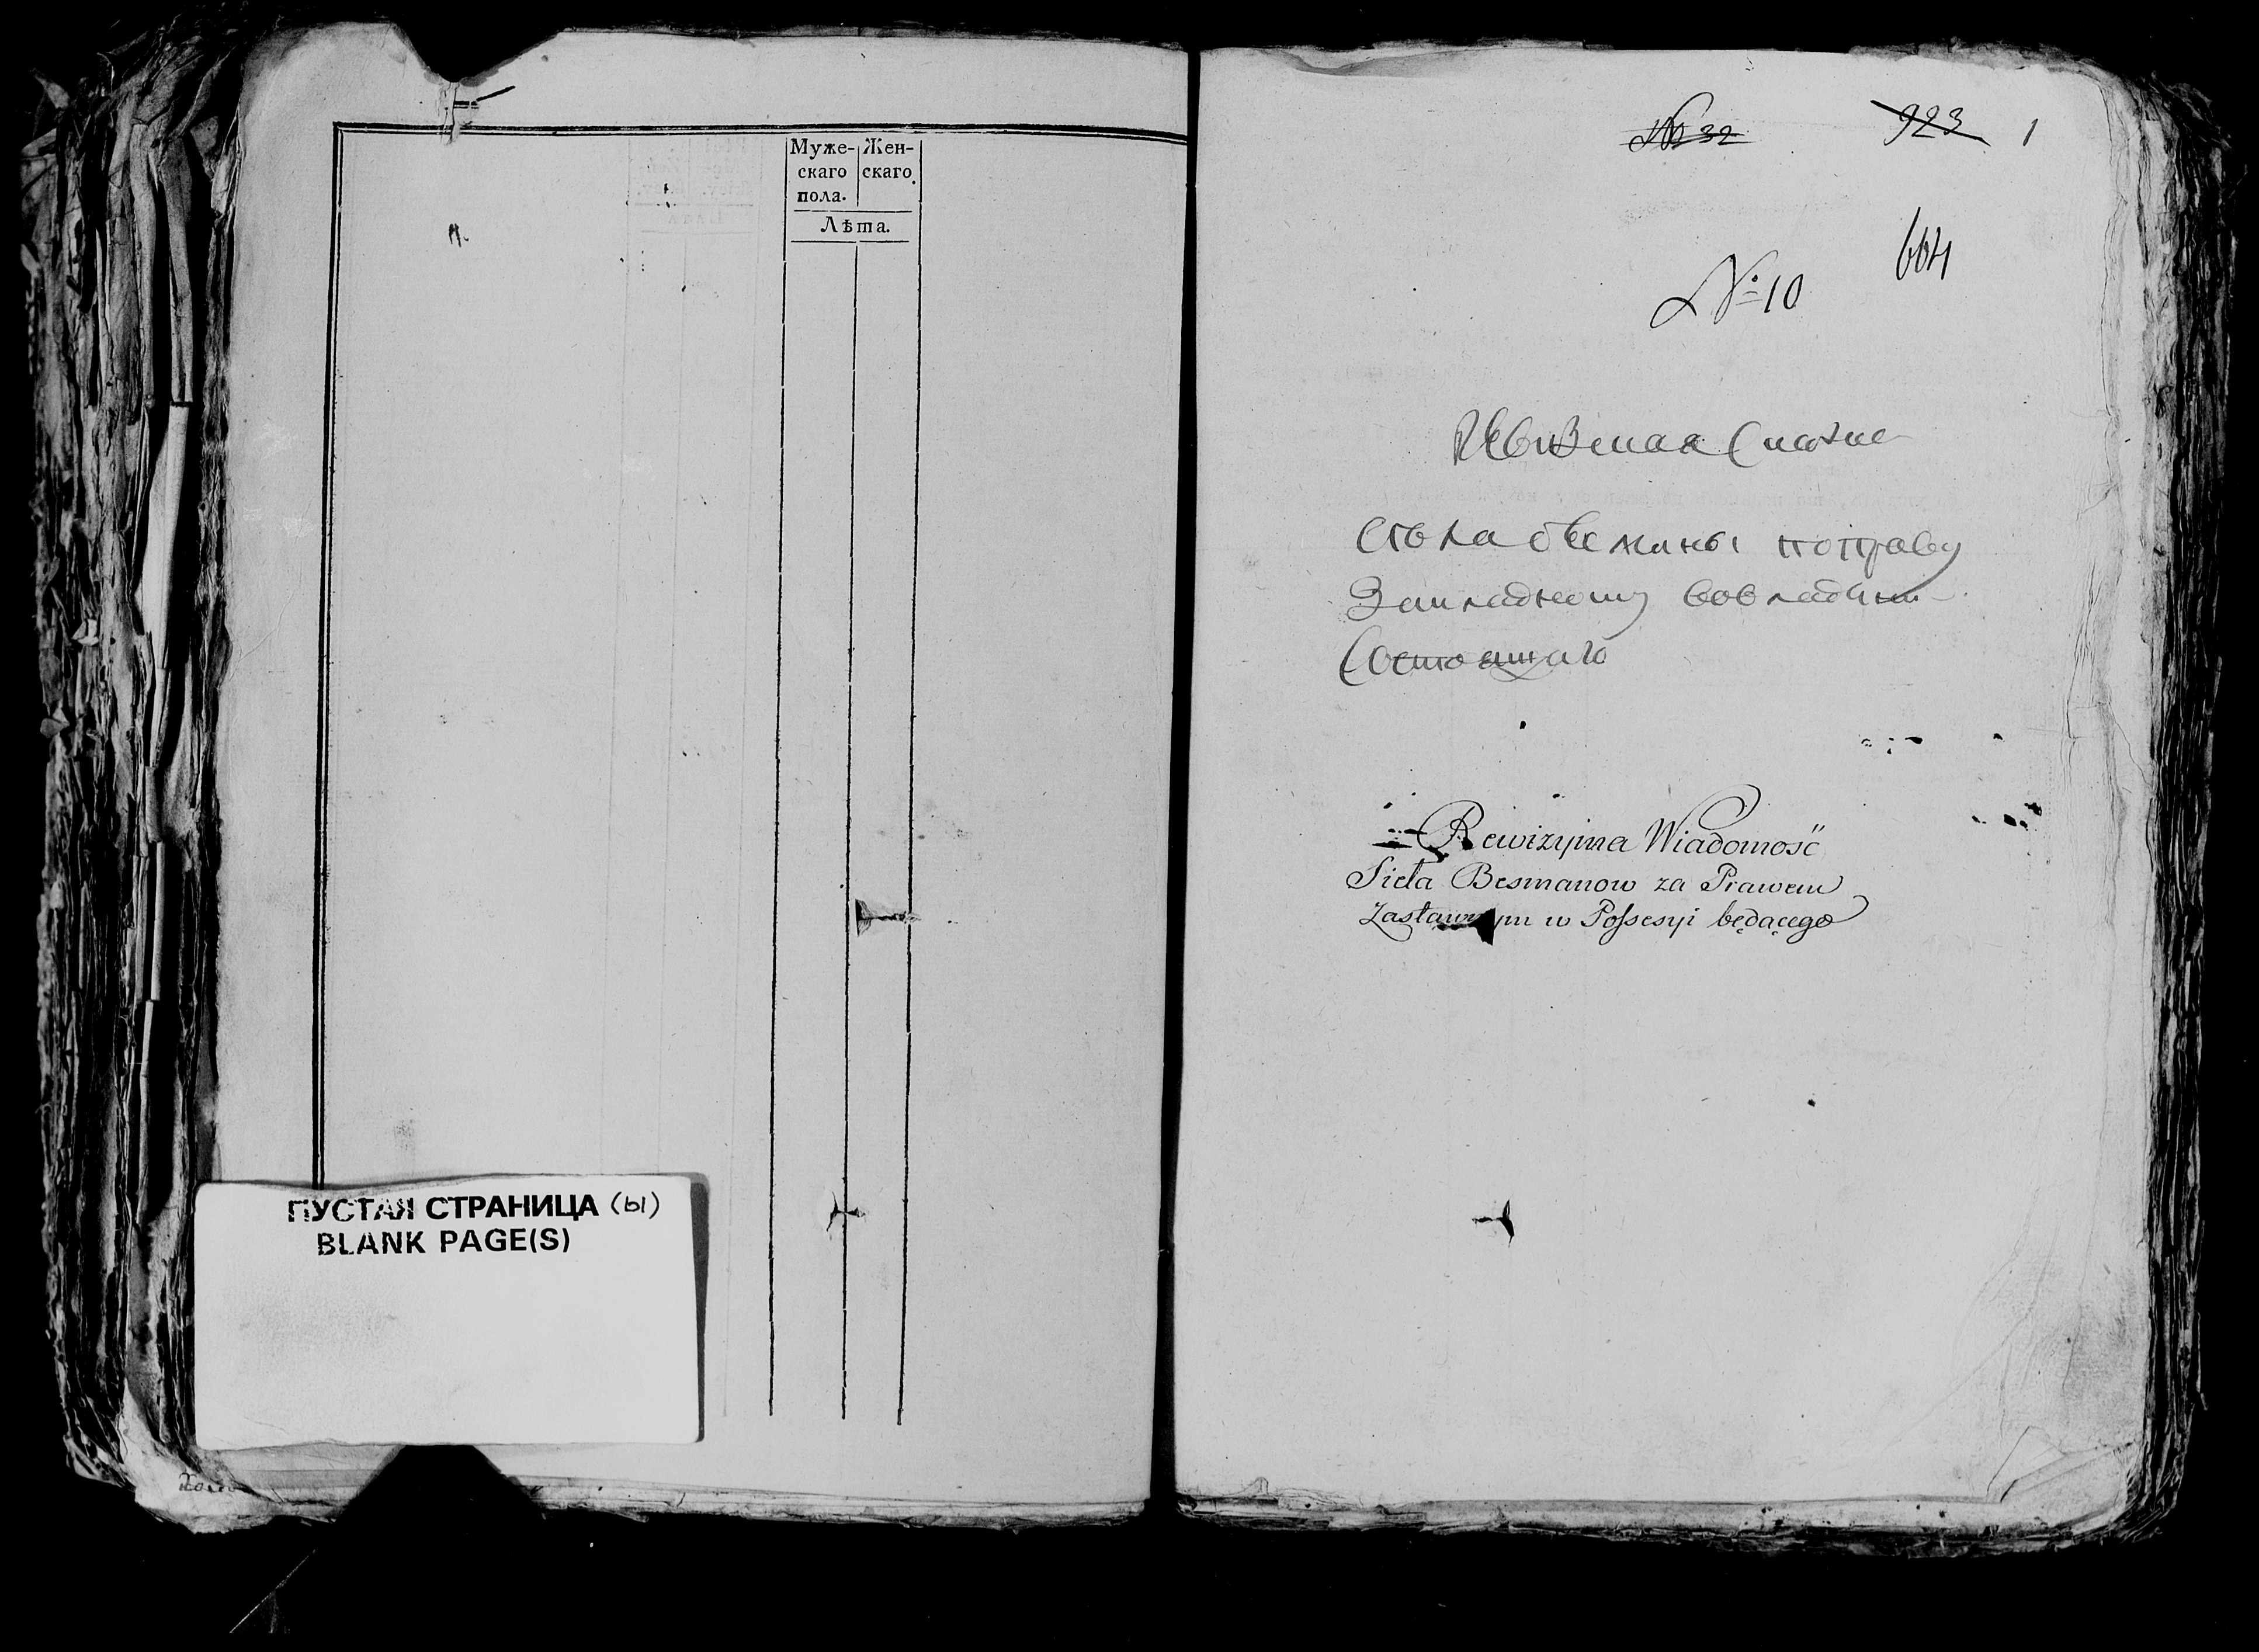 Муже- Жен-
скаго скаго
пола.
Лѣта.
ПУСТАЯ СТРАНИЦА (ы)
BLANK PAGE(S)
№ 32 923 1
664
№ 10
Ревизская Сказка
Села поправу
Закладному вовладѣнии
Состоящаго
Rewizyina Wiadomość
Sieła Besmanow za Prawem
Zastawnym w Possesyi będącego